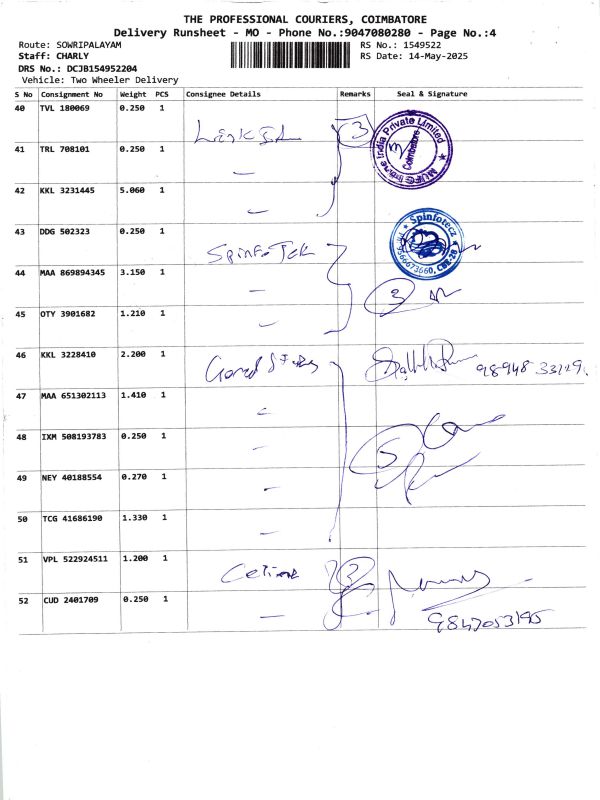 THE PROFESSIONAL COURIERS, COIMBATORE
Delivery Runsheet - MO - Phone No.:9047080280 - Page No.:4
Route: SOWRIPALAYAM RS No.: 1549522
Staff: CHARLY RS Date: 14-May-2025
DRS No.: DCJB154952204
Vehicle: Two Wheeler Delivery
S No Consignment No Weight PCS Consignee Details Remarks Seal & Signature
40 TVL 180069 0.250 1
3
Private Limited
Coimbatore
41 TRL 708101 0.250 1
42 KKL 3231445 5.060 1
Spinfotecz
43 DDG 502323 0.250 1
SpinfoTek
44 MAA 869894345 3.150 1
3
45 OTY 3901682 1.210 1
46 KKL 3228410 2.200 1
47 MAA 651302113 1.410 1
48 IXM 508193783 0.250 1
5
49 NEY 40188554 0.270 1
50 TCG 41686190 1.330 1
51 VPL 522924511 1.200 1
52 CUD 2401709 0.250 1